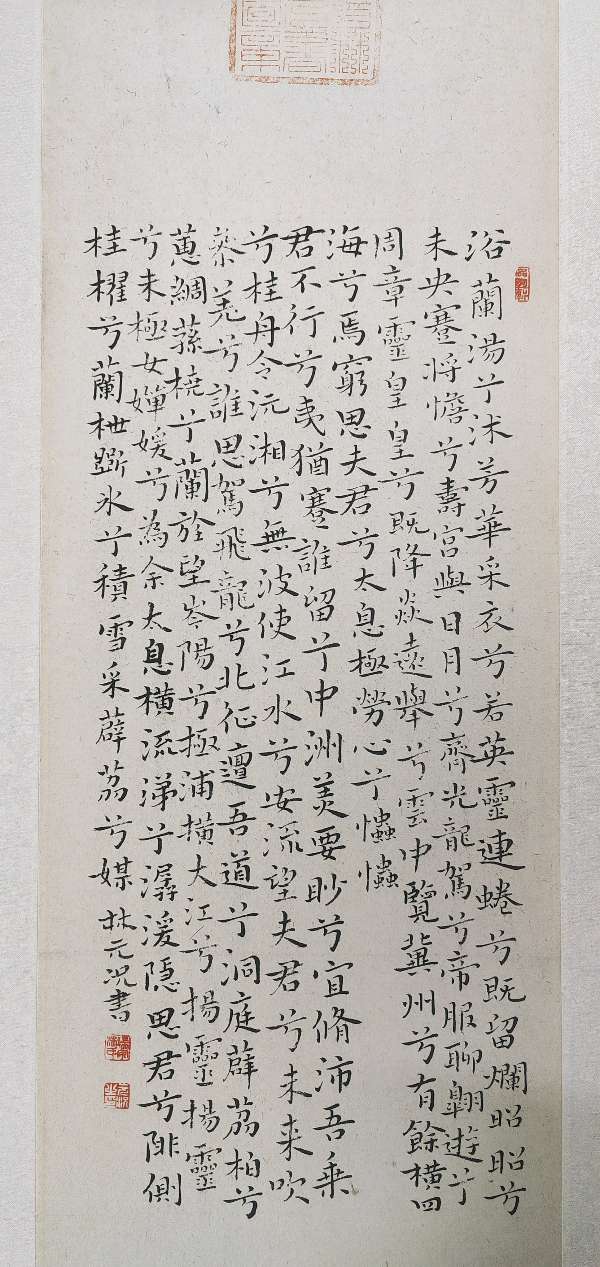 浴蘭湯兮沐芳華采衣兮若英靈連蜷兮既留爛昭昭兮
未央蹇將憺兮壽宮與日月兮齊光龍駕兮帝服聊翱遊兮
周章靈皇皇兮既降猋遠舉兮雲中覽冀州兮有餘橫四
海兮焉窮思夫君兮太息極勞心兮𢥞𢥞
君不行兮夷猶蹇誰留兮中洲美要眇兮宜脩沛吾乗
兮桂舟令沅湘兮無波使江水兮安流望夫君兮未来吹
參差兮誰思駕飛龍兮北征邅吾道兮洞庭薜荔柏兮
蕙綢蓀橈兮蘭旌望岑陽兮極浦橫大江兮揚靈揚靈
兮未極女嬋媛兮為余太息橫流涕兮潺湲隱思君兮陫側
桂櫂兮蘭枻斵冰兮積雪采薜荔兮媒 林元況書